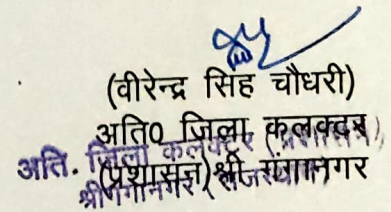 (वीरेन्द्र सिंह चौधरी)
अति0 जिला कलक्टर
(प्रशासन) श्री गंगानगर
अति. जिला कलक्टर (प्रशासन)
श्रीगंगानगर (राजस्थान)